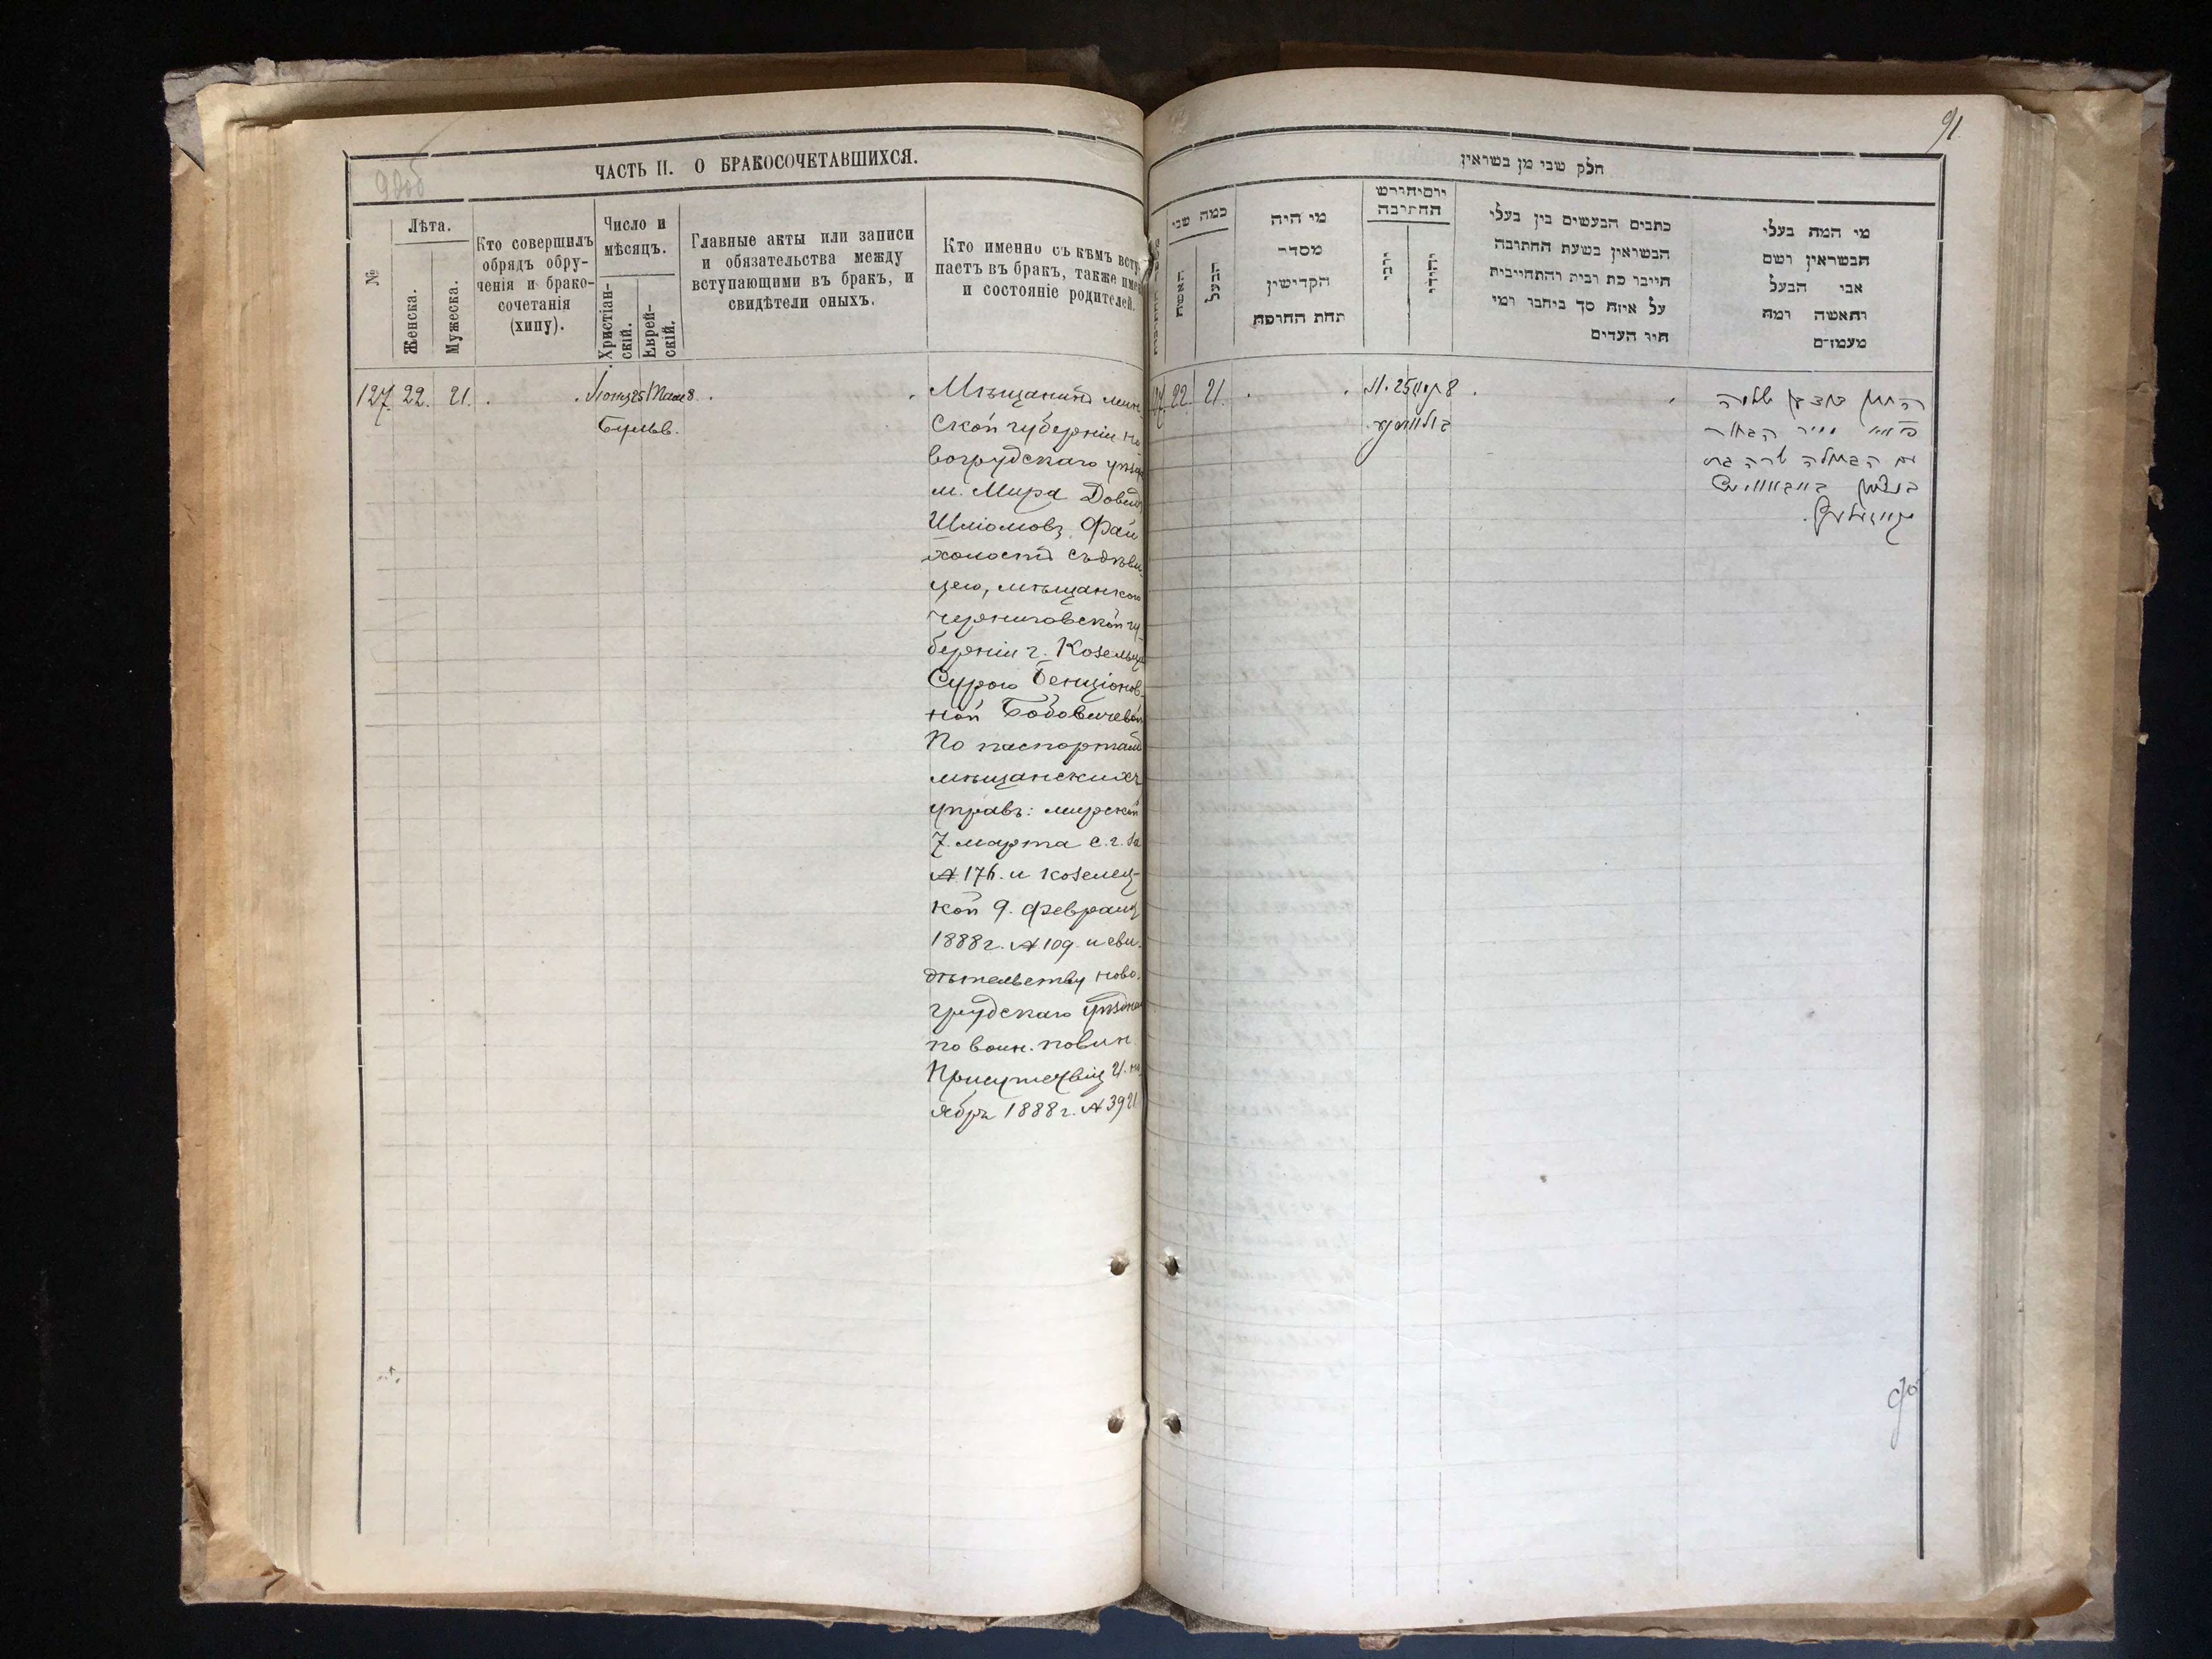 92об
ЧАСТЬ II. О БРАКОСОЧЕТАВШИХСЯ.
№
Лѣта.
Женска.
Мужеска.
Кто совершилъ
обрядъ обру-
ченія и брако-
сочетанія
(хипу).
Число и
мѣсяцъ.
Христіан-
скій.
Еврей-
скій.
Главные акты или записи
и обязательства между
вступающими въ бракъ, и
свидѣтели оныхъ.
Кто именно съ кѣмъ всту-
паетъ въ бракъ, также имя
и состояніе родителей.
127. 22. 21.
Іюня 25 Таам 8
Бульв.
Мѣщанинъ мин-
ской губерніи но-
вогрудскаго уѣзда
м. Мира Довидъ
Шліомовъ Фай
холостъ съ дѣви-
цею, мѣщанкою
черниговской гу-
берніи г. Козельца
Сурою Бенціонов-
ной Бабовичевой
По паспортамъ
мѣщанскихъ
управъ: мирской
7. марта с. г. за
№ 176. и козелец-
кой 9. февраля
1888 г. № 109. и сви-
дѣтельству ново-
грудскаго уѣздна
по воин. повин.
Присутствія 21. но
ября 1888 г. № 3921
91
חלק שני מן הנשואין
כמה שני
האשה
הבעל
מי היה
מסדר
הקדישין
תחת החופה
יום וחודש
החתונה
יוני
יהודי
כתבים הנעשים בין בעלי
הנשואין בשעת החתונה
על איזה סך ביחבו ומי
היו העדים
מי המה בעלי
הנשואין ושם
אבי הבעל
והאשה ומה
מעמדם
127. 22. 21.
25
8
החתן
שלמה
הבתולה שרה בת